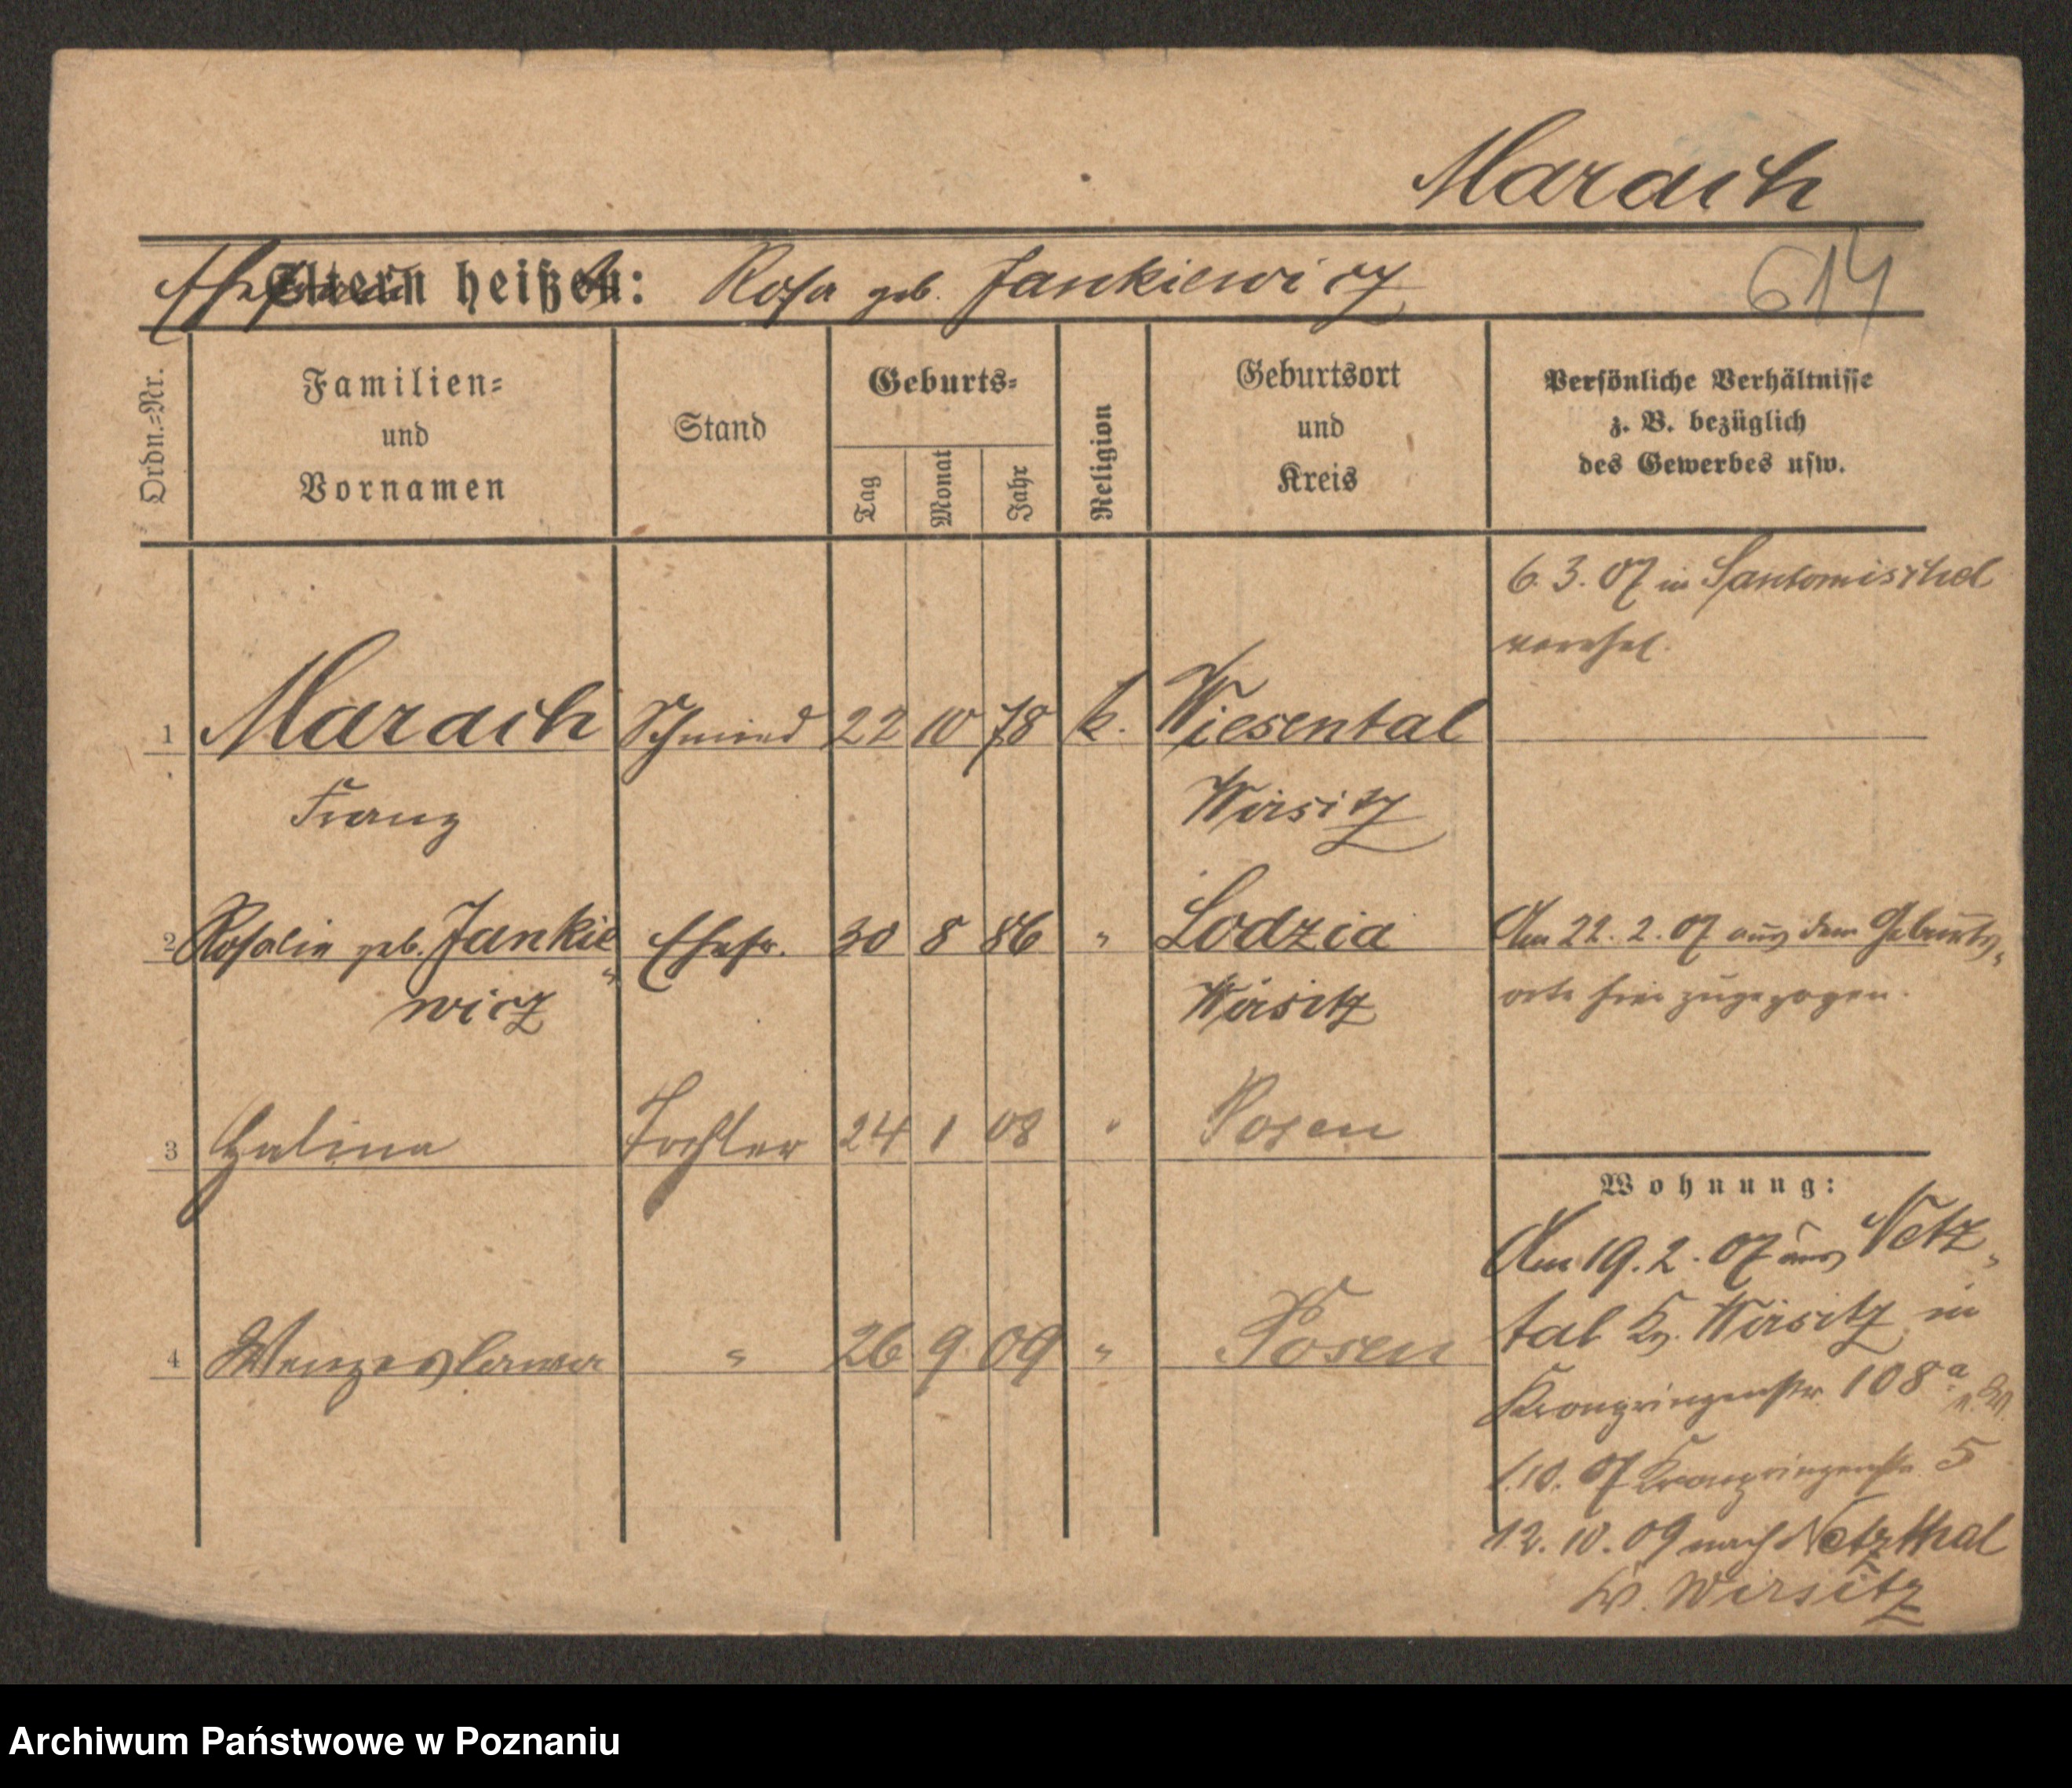 Marach
Ehefrau Eltern heißen: Rosa geb. Jankiewicz
614
Ordn.=Nr.
Familien=
und
Vornamen
Stand
Geburts=
Tag
Monat
Jahr
Religion
Geburtsort
und
Kreis
Persönliche Verhältnisse
z. B. bezüglich
des Gewerbes usw.
6. 3. 07 in Santomischel
vereh.
1 Marach Schmied 22 10 78 k. Wiesental
Franz Wirsitz
2 Rosalie geb. Jankie Ehefr. 30 8 86 " Lodzia Am 22. 2. 07 aus dem Geburts-
wicz Wirsitz orte hier zugezogen.
3 Halina Tochter 24 1 08 " Posen
Wohnung:
Am 19. 2. 07 aus Netz-
tal Kr. Wirsitz in
4 Wenzeslawa " 26 9 09 " Posen
Kronprinzenstr. 108a
1.10. 07 Kronprinzenstr. 5
12. 10. 09 nach Netzthal
Kr. Wirsitz
Archiwum Państwowe w Poznaniu